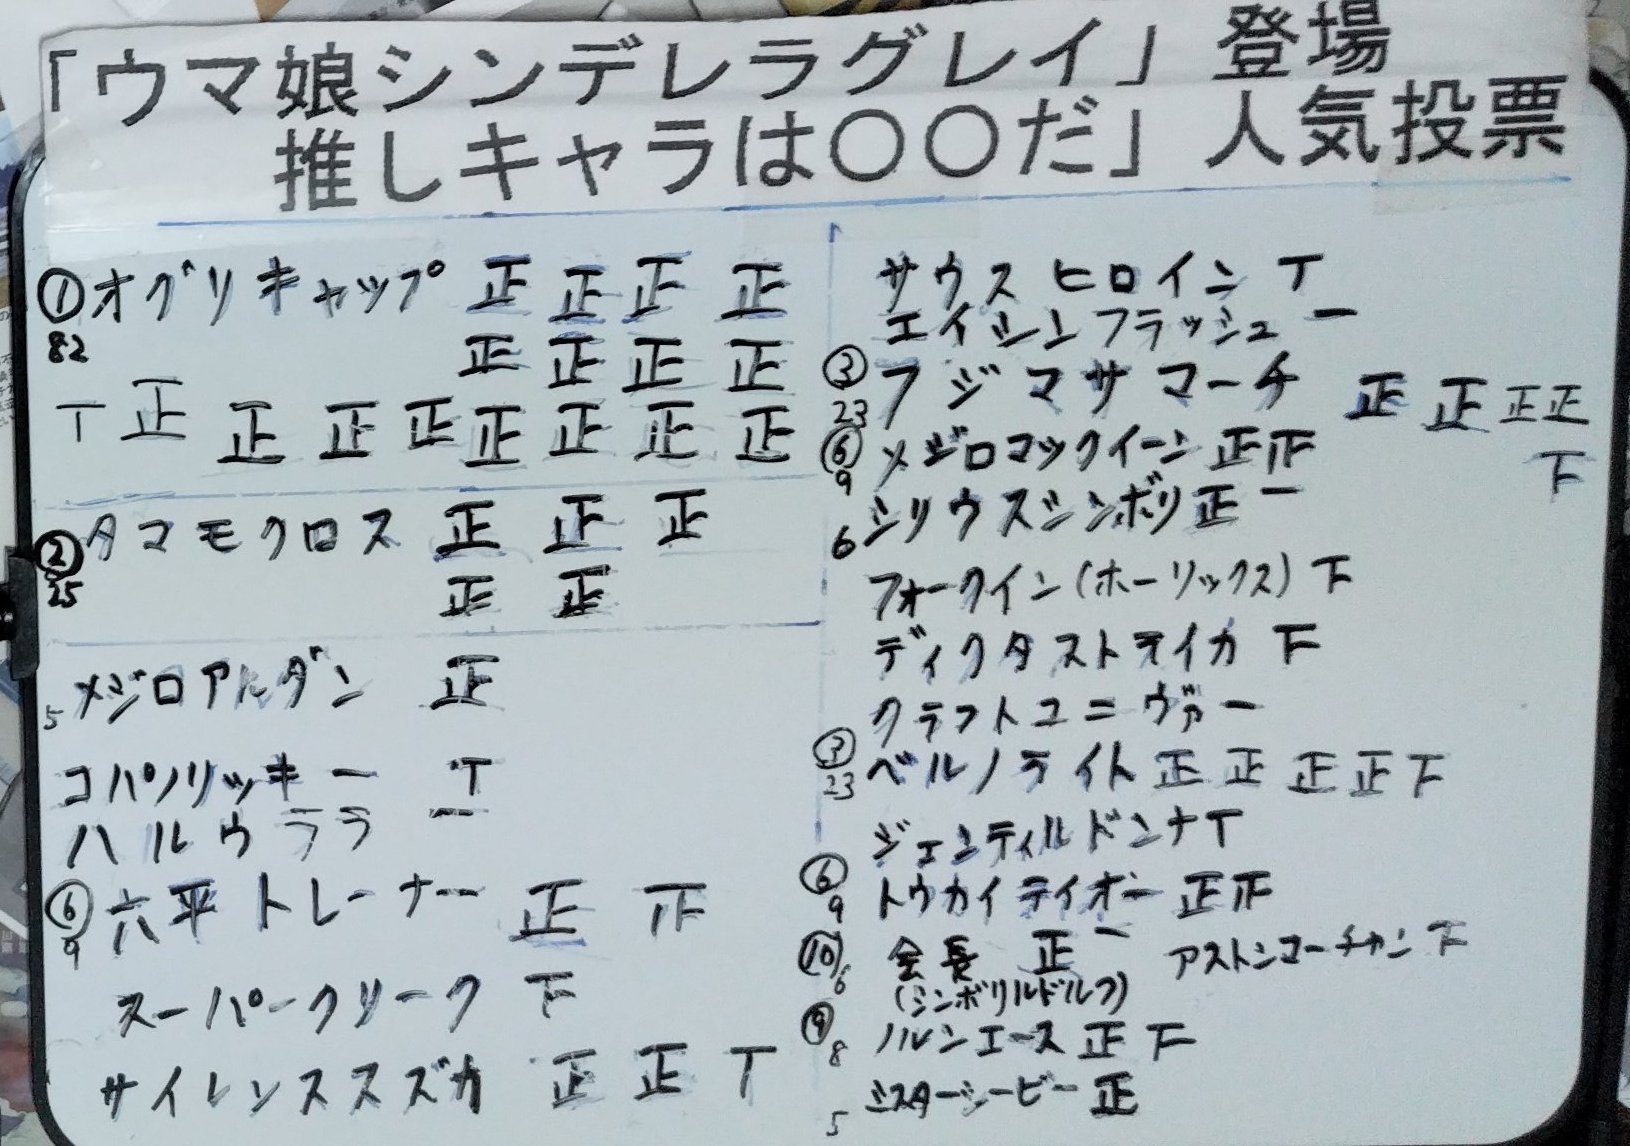 「ウマ娘シンデレラグレイ」登場
推しキャラは〇〇だ」人気投票
①オグリキャップ 正 正 正 正
82 正 正 正 正
T 正 正 正 正 正 正 正 正
②タマモクロス 正 正 正
25 正 正
5 メジロアルダン 正
コパノリッキー T
ハルウララ 一
⑥六平トレーナー 正 正
9
スーパークリーク 下
サイレンススズカ 正 正 T
サウスヒロイン T
エイシンフラッシュ 一
③フジマサマーチ 正 正 正 正
23 下
⑥メジロマックイーン 正 正
9
6 シリウスシンボリ 正 一
フォークイン(ホーリックス) 下
ディクタストライカ 下
クラフトユニヴァ 一
③ベルノライト 正 正 正 正 下
23
ジェンティルドンナ T
⑥トウカイテイオー 正 正
9
⑩会長 正 一 アストンマーチャン 下
6 (シンボリルドルフ)
⑨ノルンエース 正 下
8
5 ミスターシービー 正